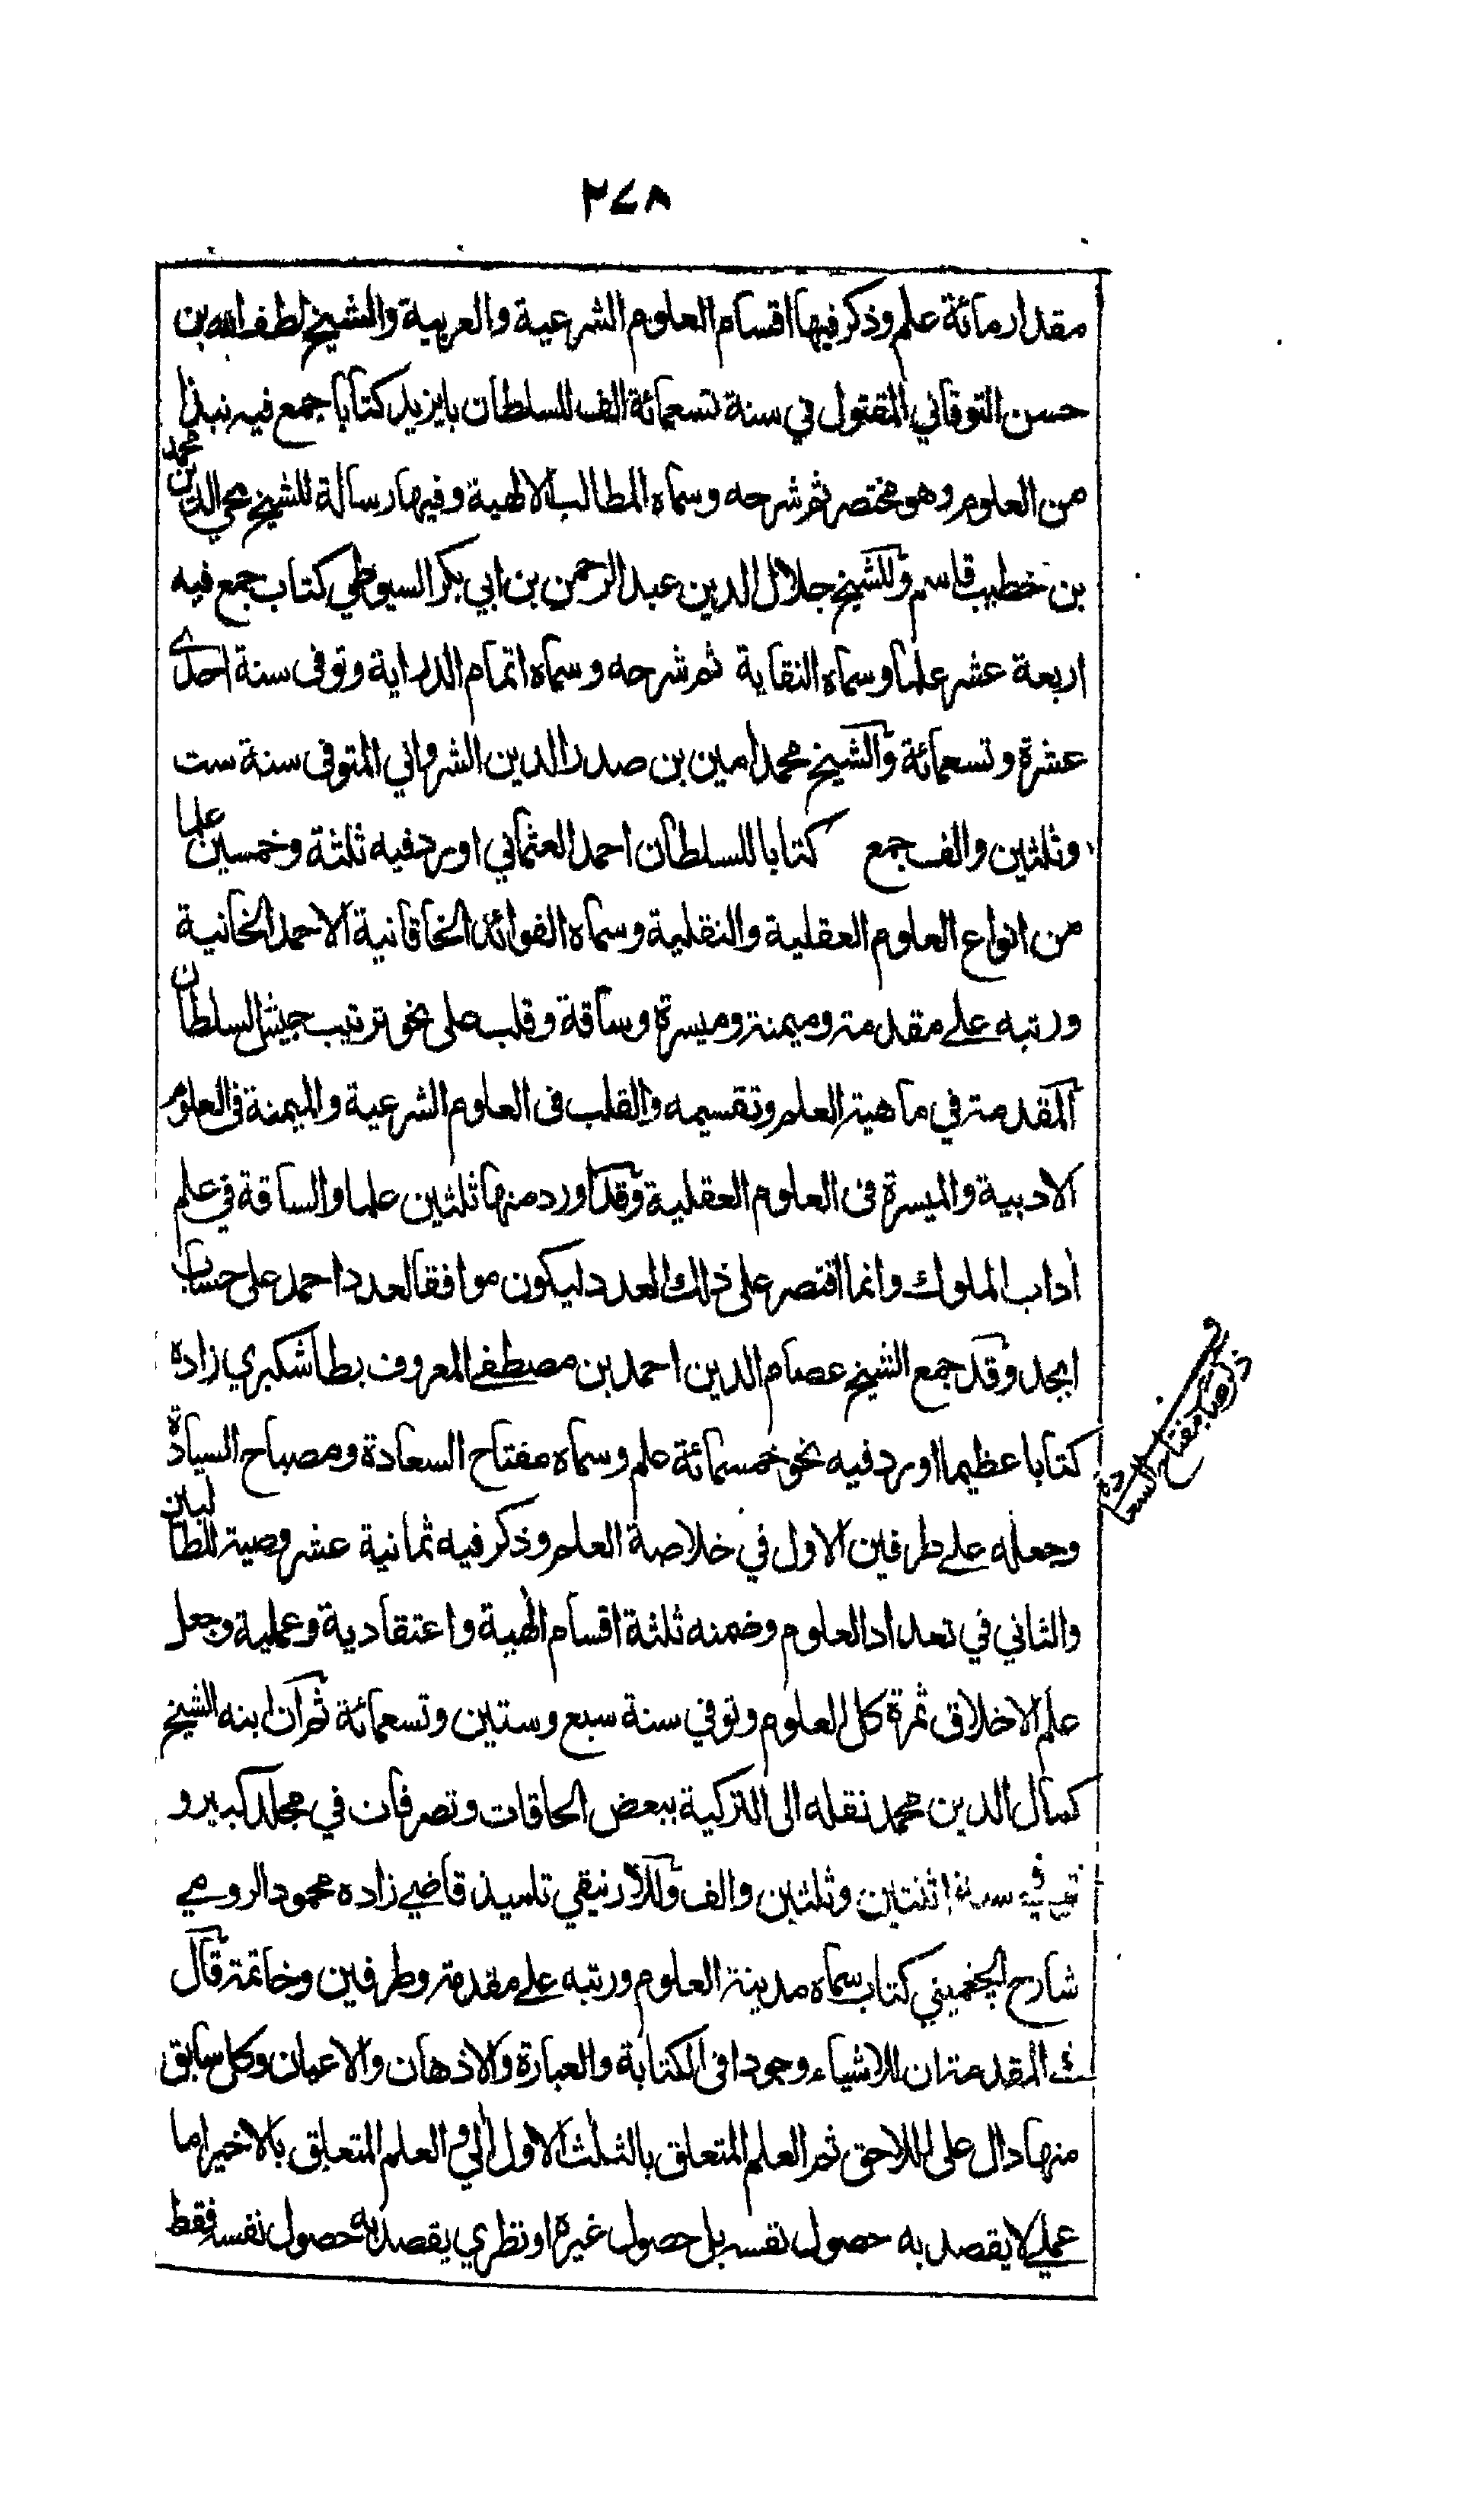 ٢٤٨
مقدار مائة علم وذكر فيها اقسام العلوم الشرعية والعربية والشيخ لطف الله بن
حسن التوقاني المقتول في سنة تسعمائة الف للسلطان بايزيد كتابا جمع فيه نبذا
من العلوم وهو مختصر ثم شرحه وسماه المطالب الالهية وفيها رسالة للشيخ محي الدين محمد
بن خطيب قاسم وللشيخ جلال الدين عبد الرحمن بن ابي بكر السيوطي كتاب جمع فيه
اربعة عشر علما وسماه النقاية ثم شرحه وسماه اتمام الدراية وتوفى سنة احدى
عشرة وتسعمائة والشيخ محمد امين بن صدر الدين الشرواني المتوفى سنة ست
وثلثين والف جمع كتابا للسلطان احمد العثماني اورد فيه ثلثة وخمسين علما
من انواع العلوم العقلية والنقلية وسماه الفوائد الخاقانية الاحمد الخانية
ورتبه على مقدمة وميمنة وميسرة وساقة وقلب على نحو ترتيب جيش السلطان
المقدمة في ماهية العلم وتقسيمه والقلب فى العلوم الشرعية والميمنة فى العلوم
الادبية والميسرة فى العلوم العقلية وقد اورد منها ثلثين علما والساقة في علم
أداب الملوك وانما اقتصر على ذلك العدد ليكون موافقا لعدد احمد على حساب
ابجد وقد جمع الشيخ عصام الدين احمد بن مصطفى المعروف بطاشكبري زاده
كتابا عظيما اورد فيه نحو خمسمائة علم وسماه مفتاح السعادة ومصباح السيادة
وجعله على طرفين الاول في خلاصة العلم وذكر فيه ثمانية عشر وصية للطالبين
والثاني في تعداد العلوم وضمنه ثلثة اقسام الهية واعتقادية وعملية وجعل
علم الاخلاق ثمرة كل العلوم وتوفي سنة سبع وستين وتسعمائة ثم ان ابنه الشيخ
كمال الدين محمد نقله الى التركية ببعض الحاقات وتصرفات في مجلد كبير و
توفي سنة اثنتين وثلثين والف وللارنيقي تلميذ قاضي زاده محمود الرومي
شارح الچغميني كتاب سماه مدينة العلوم ورتبه على مقدمة وطرفين وخاتمة قال
في المقدمة ان للاشياء وجودا فى الكتابة والعبارة والاذهان والاعيان وكل سابق
منها دال على اللاحق ثم العلم المتعلق بالثلث الاول الي والعلم المتعلق بالاخير اما
عملي لا يقصد به حصول نفسه بل حصول غيره او نظري يقصد به حصول نفسه فقط
مفتاح السعادة